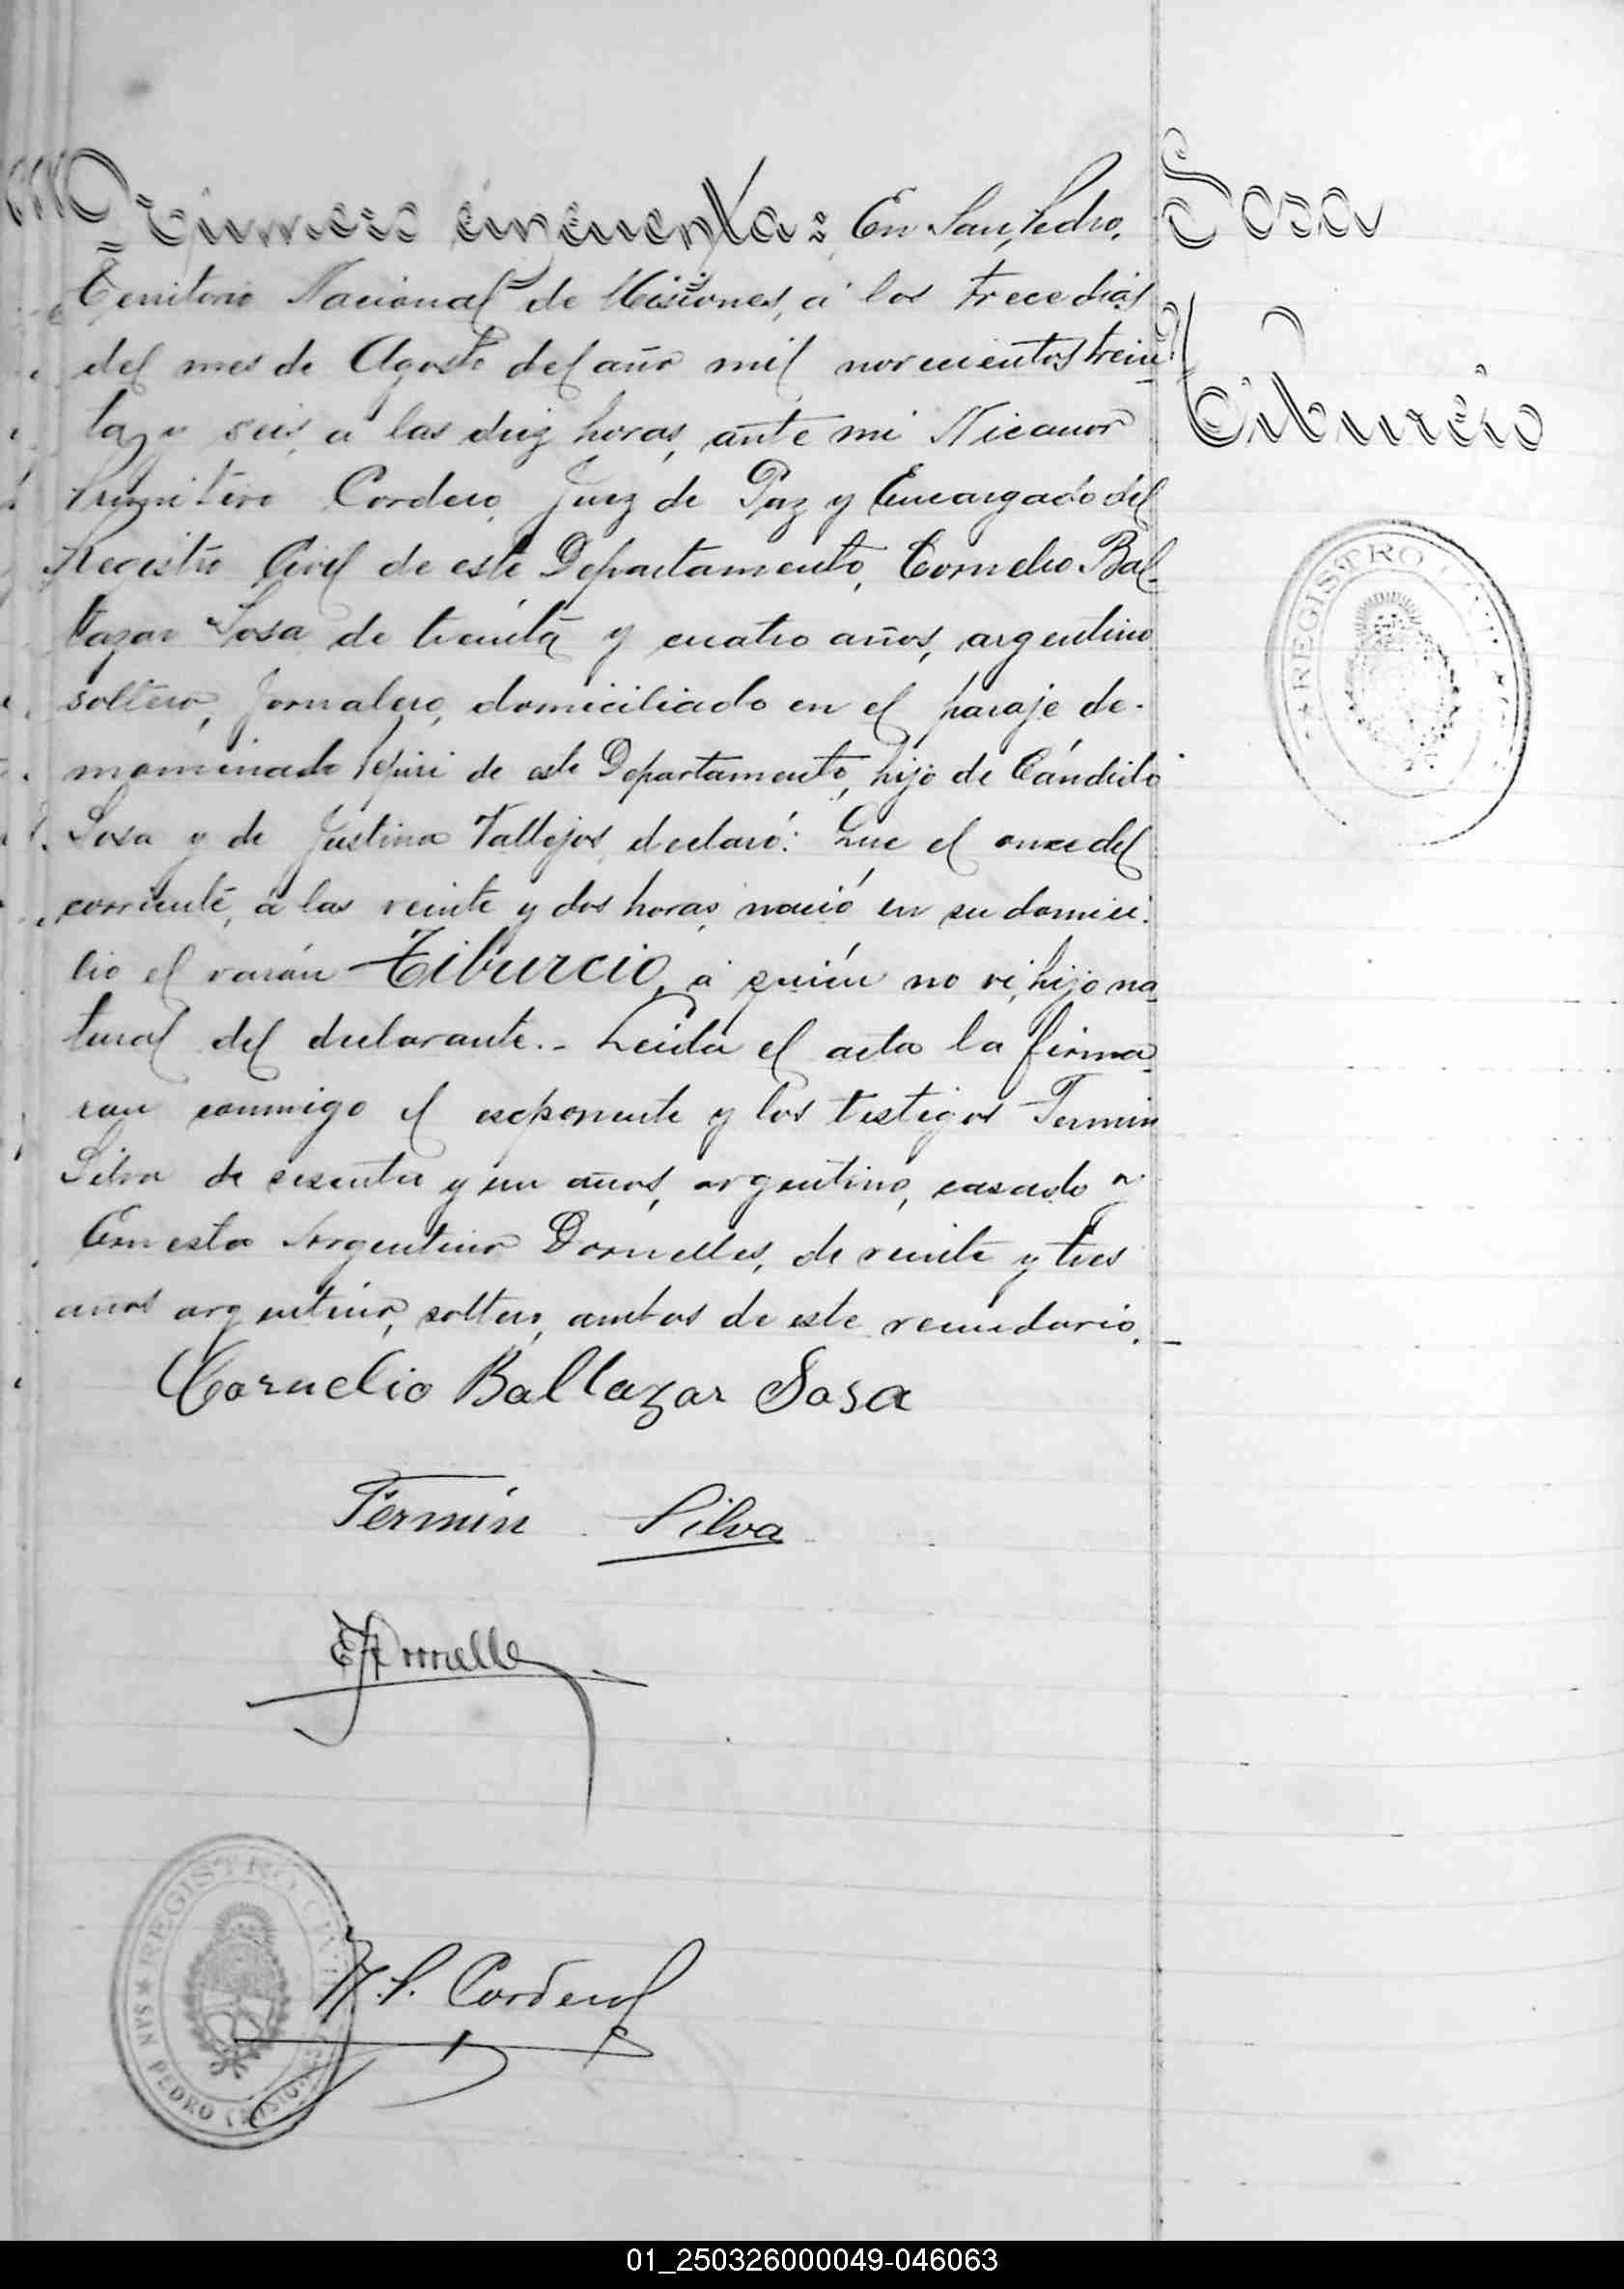 Número cincuenta: En San Pedro,
Territorio Nacional de Misiones, á los trece dias
del mes de Agosto del año mil novecientos trein-
ta y seis, a las diez horas, ante mi Nicanor
Primitivo Cordero, Juez de Paz y Encargado del
Registro Civil de este Departamento, Cornelio Bal-
tazar Sosa de treinta y cuatro años, argentino
soltero, Jornalero, domiciliado en el paraje de-
nominado de este Departamento, hijo de Cándido
Sosa y de Justina Vallejos, declaró: Que el once del
corriente, á las veinte y dos horas, nació en su domici-
lio el varón Tiburcio, á quién no vi, hijo na-
tural del declarante.- Leida el acta la firma-
ron conmigo el exponente y los testigos Fermin
Silva de sesenta y un años, argentino, casado y
Ernesto Argentino Dornelles, de veinte y tres
años argentino, soltero, ambos de este vecindario.-
Cornelio Baltazar Sosa
Fermín Silva
EADornelle
N.P. Cordero
Sosa
Tiburcio
REGISTRO
REGISTRO CIVIL
SAN PEDRO (MISIONES)
01_250326000049-046063